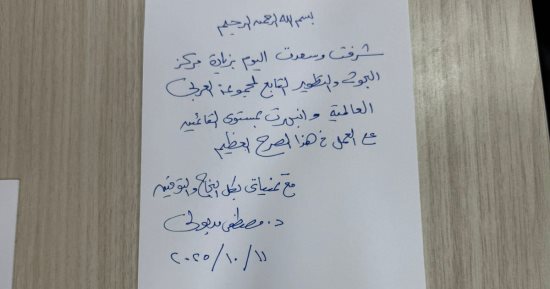 بسم الله الرحمن الرحيم
شرفت وسعدت اليوم بزيارة مركز
البحوث والتطوير التابع لمجموعة العربى
العالمية وانبهرت بمستوى القائمين
على العمل فى هذا الصرح العظيم
مع تمنياتى بكل النجاح والتوفيق
د. مصطفى مدبولى
٢٠٢٥/١٠/١١